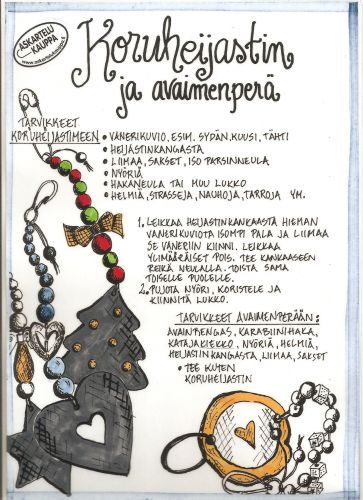 ASKARTELU
KAUPPA
Koruheijastin
ja avaimenperä
TARVIKKEET
KORUHEIJASTIMEEN
• VANERIKUVIO, ESIM. SYDÄN, KUUSI, TÄHTI
• HEIJASTINKANGASTA
• LIIMAA, SAKSET, ISO PARSINNEULA
• NYÖRIÄ
• HAKANEULA TAI MUU LUKKO
• HELMIÄ, STRASSEJA, NAUHOJA, TARROJA YM.
1. LEIKKAA HEIJASTINKANKAASTA HIEMAN
VANERIKUVIOTA ISOMPI PALA JA LIIMAA
SE VANERIIN KIINNI. LEIKKAA
YLIMÄÄRÄISET POIS. TEE KANKAASEEN
REIKÄ NEULALLA. TOISTA SAMA
TOISELLE PUOLELLE.
2. PUJOTA NYÖRI, KORISTELE JA
KIINNITÄ LUKKO.
TARVIKKEET AVAIMENPERÄÄN:
AVAINRENGAS, KARABIINIHAKA,
KATAJAKIEKKO, NYÖRIÄ, HELMIÄ,
HEIJASTINKANGASTA, LIIMAA, SAKSET
• TEE KUTEN
KORUHEIJASTIN